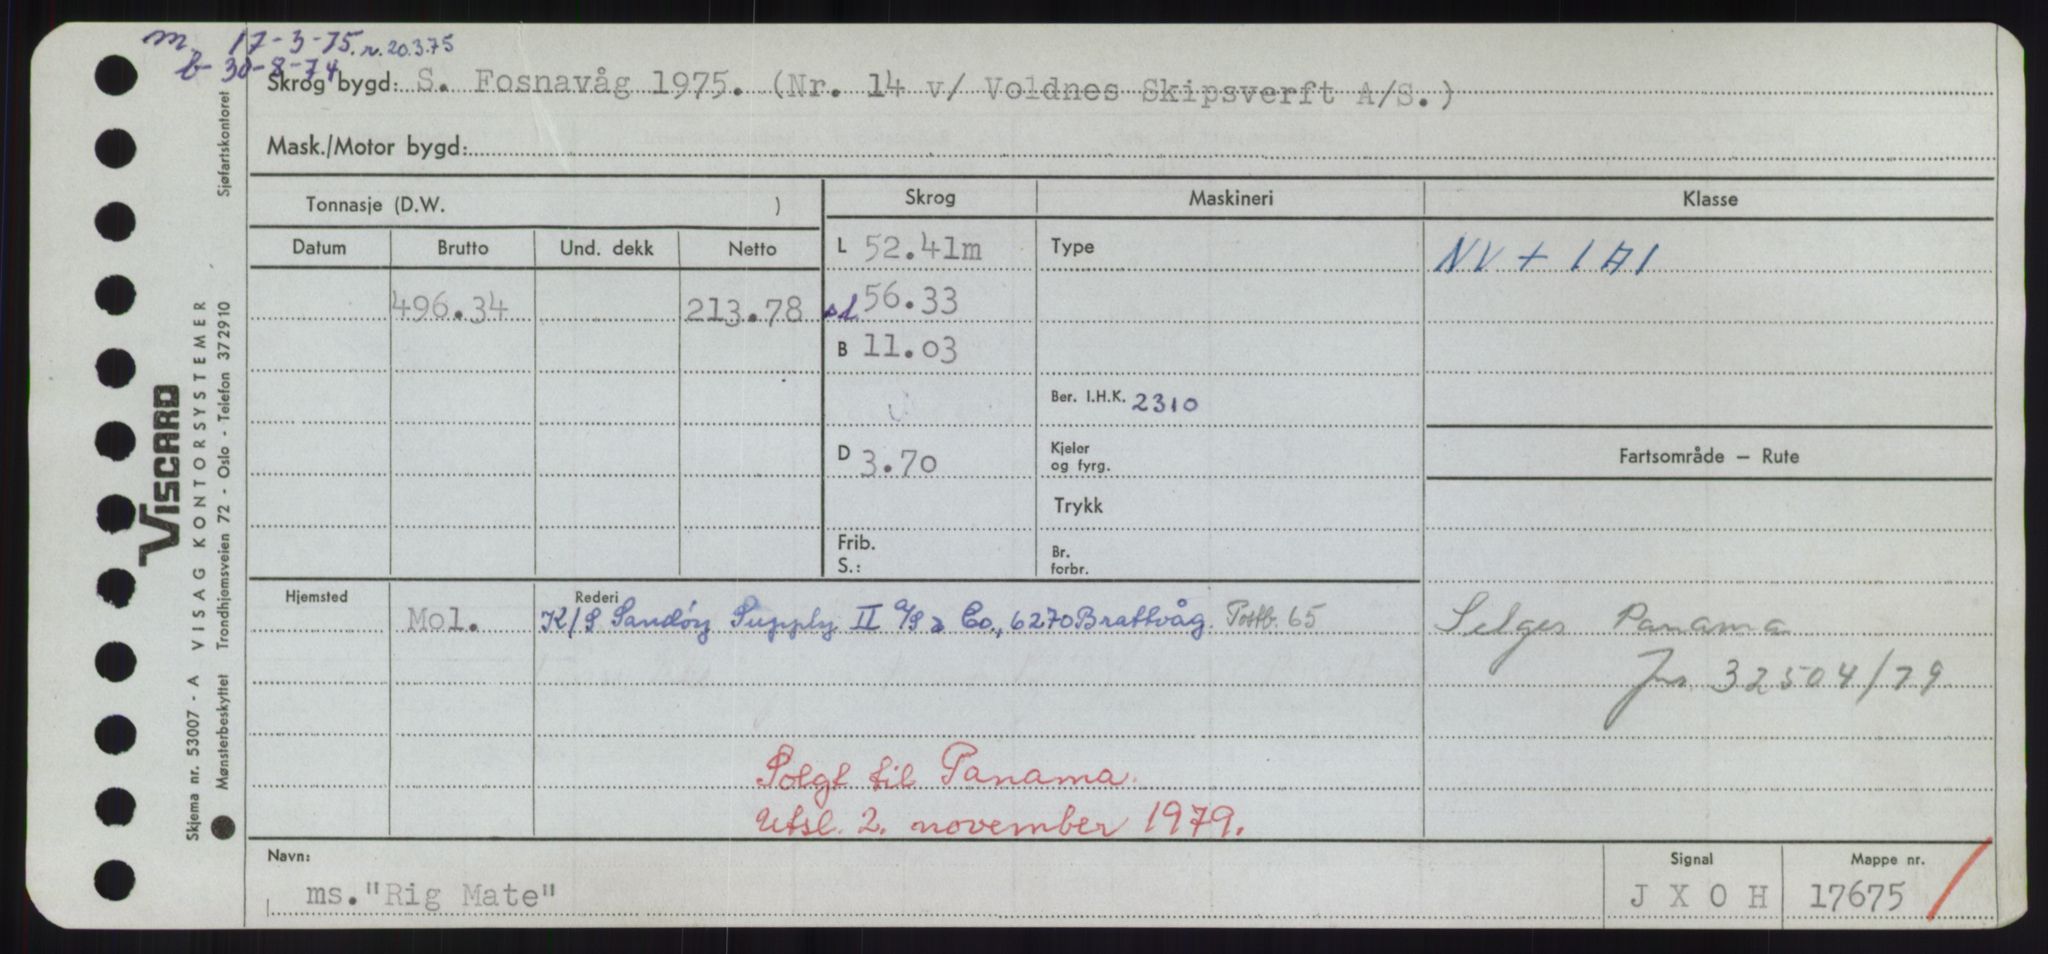 m. 17-3-75. r. 20.3.75
b- 30-8-74
Skrog bygd: S. Fosnavåg 1975. (Nr. 14 v/ Voldnes Skipsverft A/S.)
Mask./Motor bygd:
Tonnasje (D.W. )
Skrog Maskineri Klasse
Datum Brutto Und. dekk Netto
L 52.41m Type NV + 1A1
496.34 213.78 sl 56.33
B 11.03
Ber. I.H.K. 2310
D 3.70 Kjeler og fyrg.
Fartsområde — Rute
Trykk
Frib. S.: Br. forbr.
Hjemsted Rederi
Mol. K/S Sandøy Supply II A/S & Co., 6270 Brattvåg. Postb. 65
Selges Panama
Jnr. 32504/79
Solgt til Panama.
Utsl. 2. november 1979.
Navn: Signal Mappe nr.
ms. "Rig Mate" J X O H 17675
VISCARD
Skjema nr. 53007 - A VISAG KONTORSYSTEMER
Mønsterbeskyttet Trondhjemsveien 72 - Oslo - Telefon 372910 Sjøfartskontoret